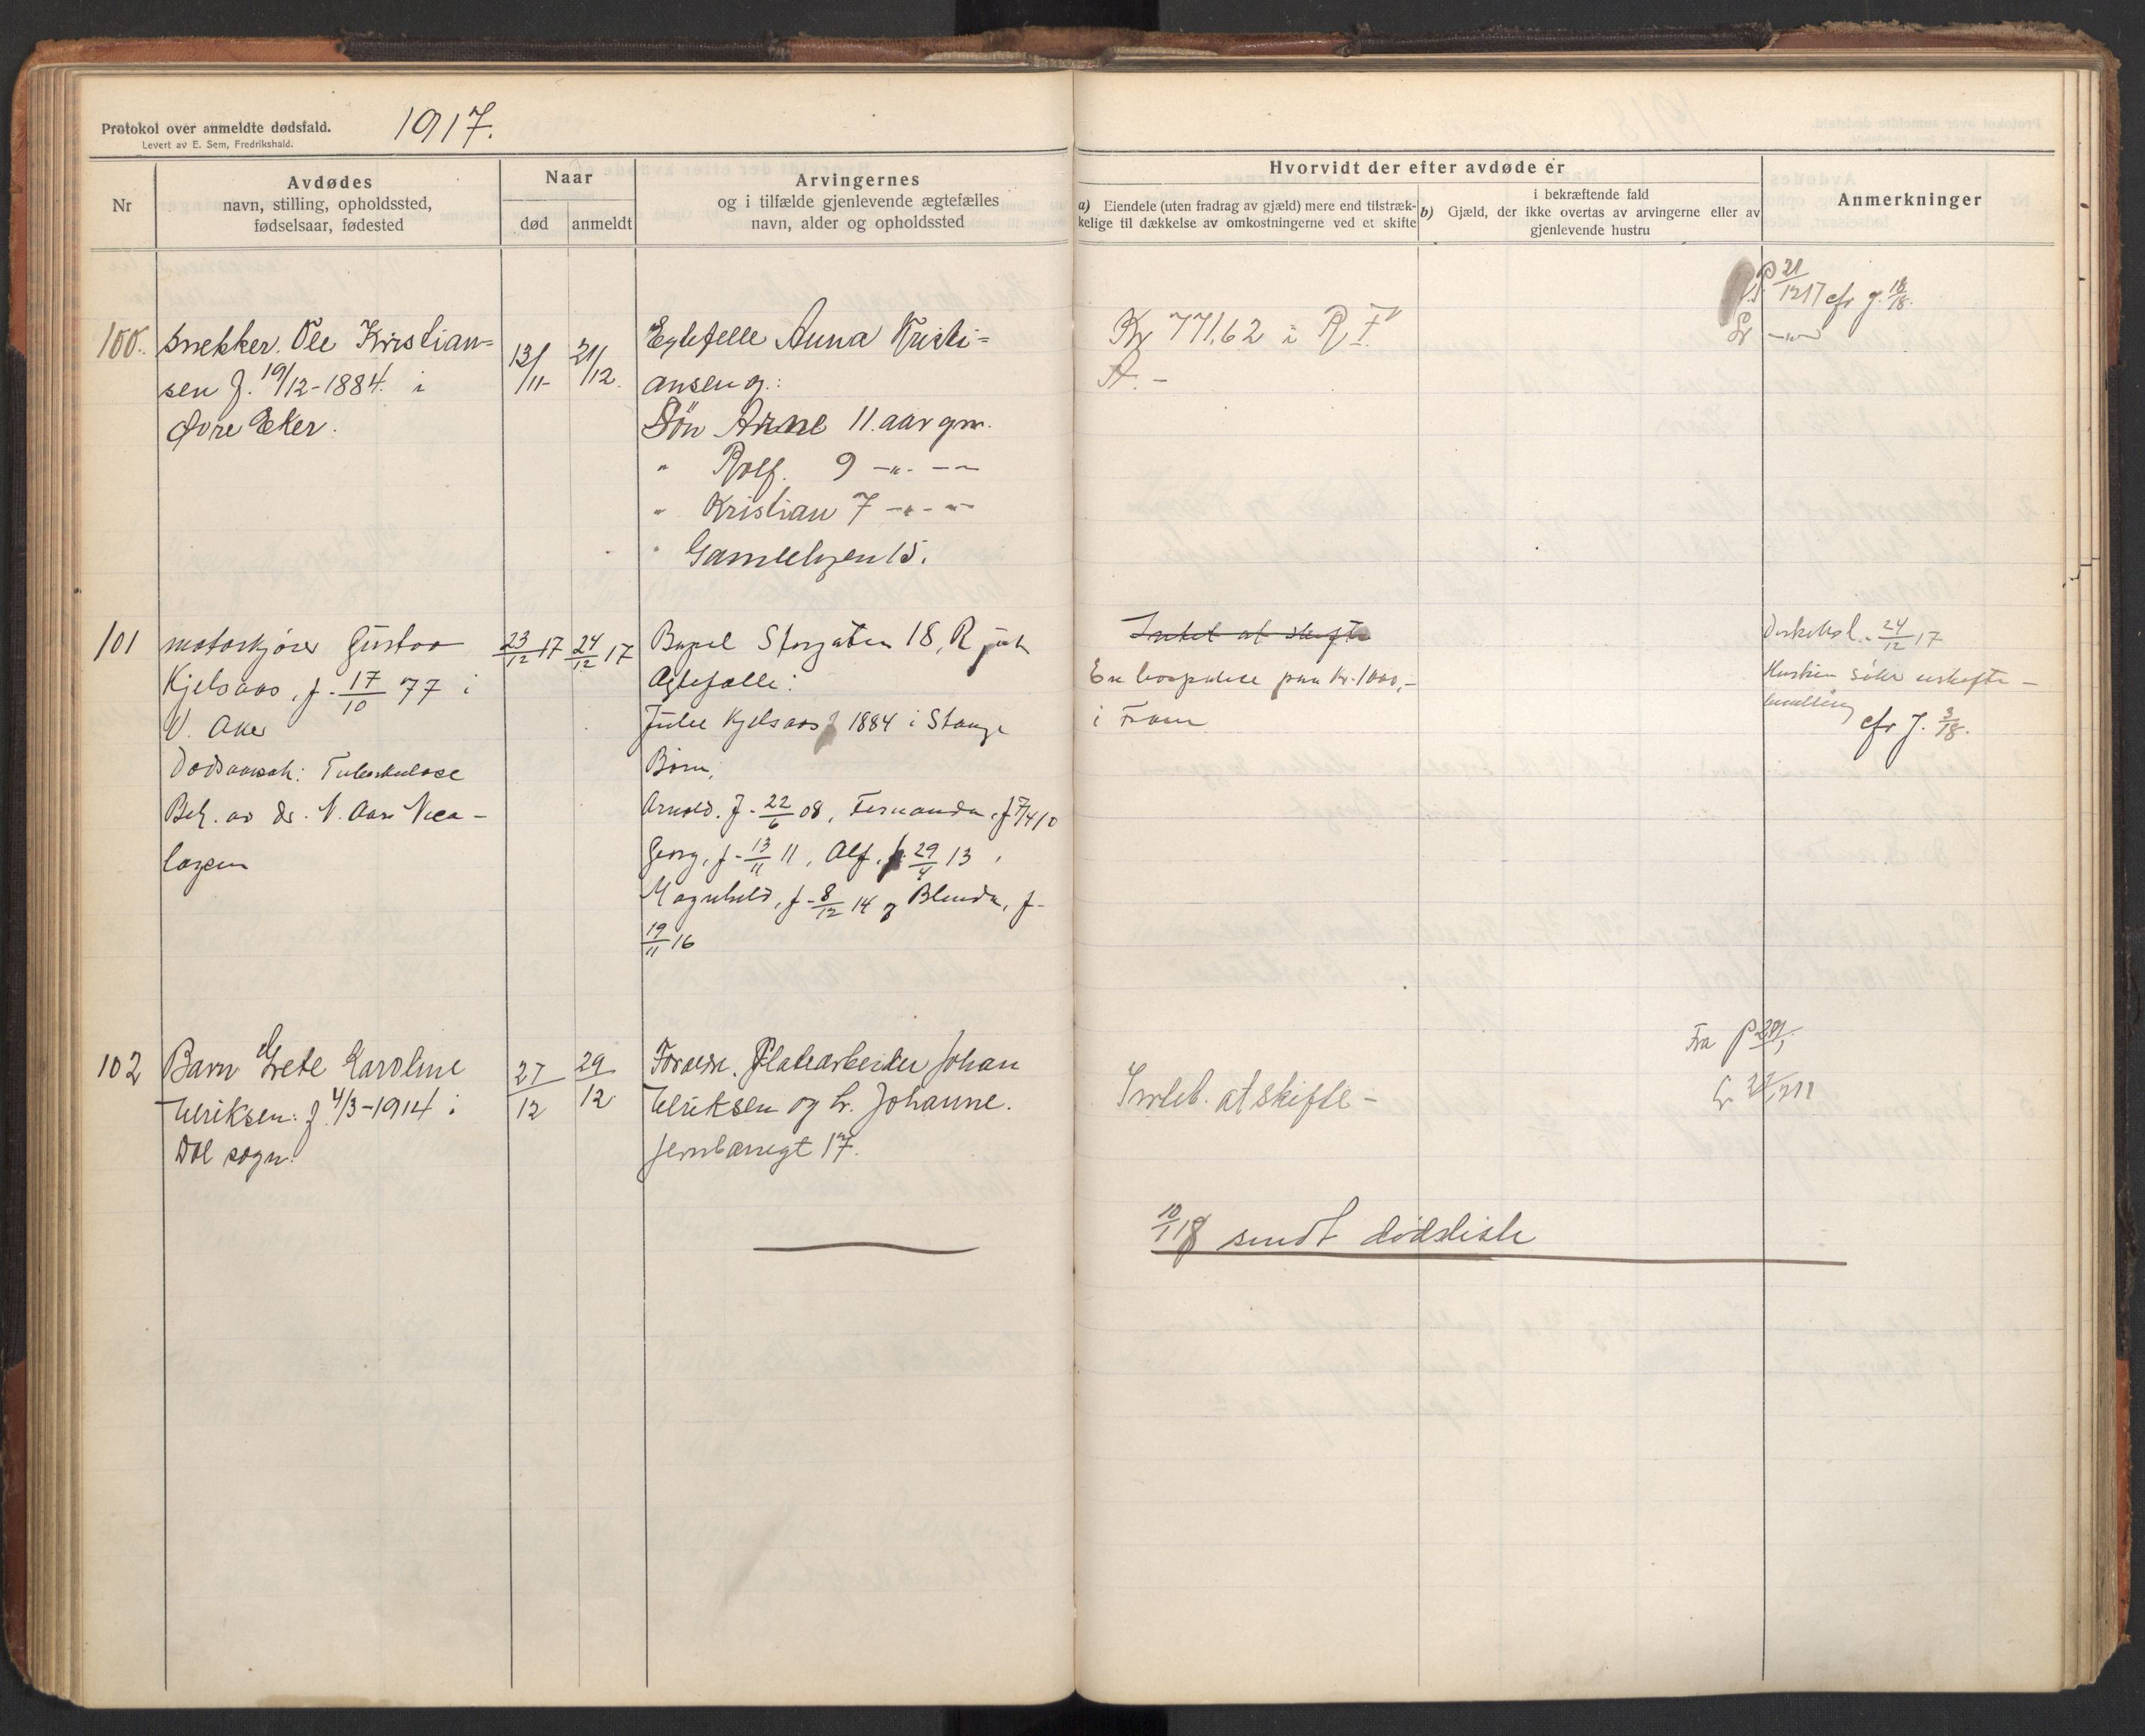 Protokol over anmeldte dødsfald.
Levert av E. Sem, Fredrikshald.
1917.
Nr
Avdødes
navn, stilling, opholdssted,
fødselsaar, fødested
Naar
død
anmeldt
Arvingernes
og i tilfælde gjenlevende ægtefælles
navn, alder og opholdssted
Hvorvidt der efter avdøde er
a) Eiendele (uten fradrag av gjæld) mere end tilstræk-
kelige til dækkelse av omkostningerne ved et skifte
i bekræftende fald
b) Gjæld, der ikke overtas av arvingerne eller av
gjenlevende hustru
Anmerkninger
100.
Snekker. Ole Kristian-
sen f. 19/12-1884. i
Øvre Eker.
13/11
21/12.
Egtefelle Anna Kristi-
ansen og:
Søn Arne 11. aar gm.
" Rolf. 9 -"- -"-
" Kristian 7 -"- -"-
" Gamlebyen 15.
Kr 771.62 i
21/12 17 cfr j. 18/18.
101
motorkjører Gustav
Kjelsaas, f. 17/10 77 i
V. Aker
Dødsaarsak: Tuberkulose
Beh. av dr. N. Aars Nico-
laysen
23/12 17
24/12 17
Bopel Storgaten 18, R
Ægtefælle:
Julie Kjelsaas f 1884 i Stange
Børn:
Arnold. f. 22/6 08, Fernanda, f 7/4 10
Georg, f. 13/11 11, Alf, f. 29/4 13,
Magnhild, f. 8/12 14 og Blenda, f.
19/11 16
Intet at skifte
En livspolice paa kr. 1000,-
i Fram
24/12 17
Hustru søker uskifte-
bevilling
cfr J. 3/18.
102
Barn Grete Karoline
Ulriksen: f. 4/3-1914 i
Dol sogn.
27/12
29/12
Foræld. Platearbeider Johan
Ulriksen og h. Johanne.
Jernbanegt 17.
Intet. at skifte -
Fra P
10/1 18 sendt dødsliste